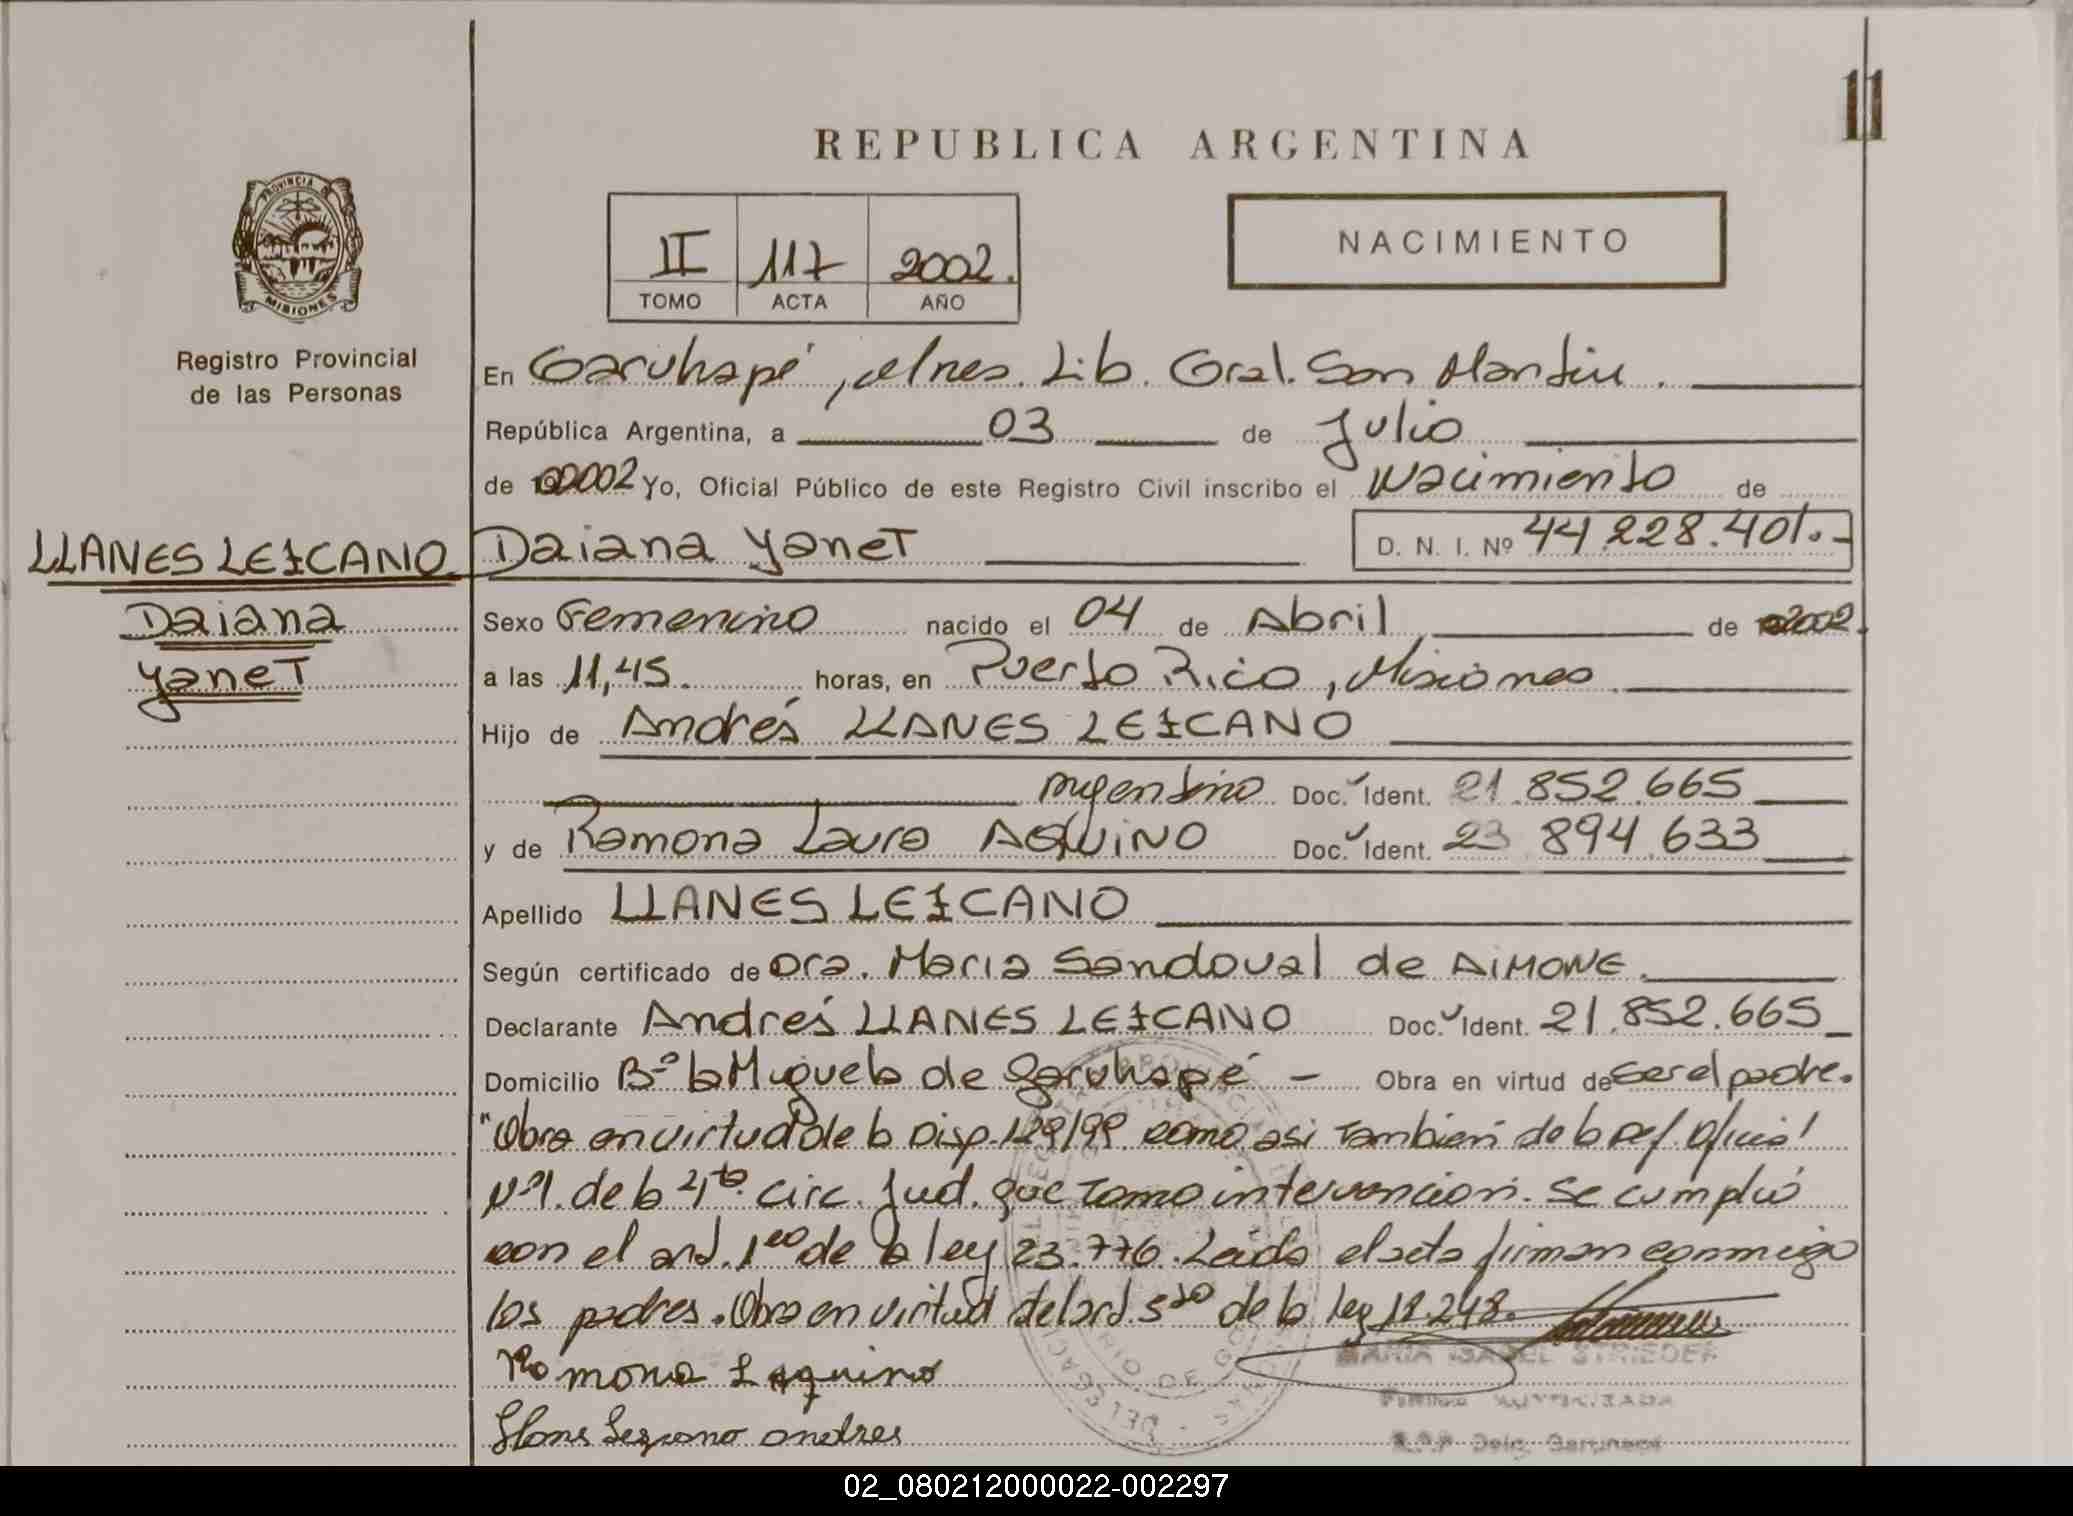 11
REPUBLICA ARGENTINA
PROVINCIA DE
MISIONES
Registro Provincial
de las Personas
II 117 2002.
TOMO ACTA AÑO
NACIMIENTO
En Garuhapé, Mnes. Lib. Gral. San Martin.
República Argentina, a 03 de Julio
de 2002 Yo, Oficial Público de este Registro Civil inscribo el Nacimiento de
LLANES LEZCANO Daiana Yanet D. N. I. Nº 44.228.401.-
Daiana
Yanet
Sexo Femenino nacido el 04 de Abril de 2002
a las 11,45. horas, en Puerto Rico, Misiones
Hijo de Andrés LLANES LEZCANO
Argentino Doc. Ident. 21.852.665
y de Ramona Laura AQUINO Doc. Ident. 23 894.633
Apellido LLANES LEZCANO
Según certificado de Dra. Maria Sandoval de AIMONE.
Declarante Andrés LLANES LEZCANO Doc. Ident. 21.852.665
Domicilio Bº la Miguela de Garuhapé - Obra en virtud de ser el padre.
"Obra en virtud de la Disp. 129/99 como asi Tambien de la Def. Oficial
Nº1. de la 4ta. Circ. Jud. que Tomo intervencion. Se cumplió
con el art. 1ero de la ley 23.776. Leida el acta firman conmigo
los padres. Obra en virtud del art. 5to de la ley 18.248.
Ramona L Aquino
MARIA ISABEL STRIEDER
Llanes Lezcano andres
AUTORIZADA
R.P.P. Deleg. Garuhape
02_080212000022-002297